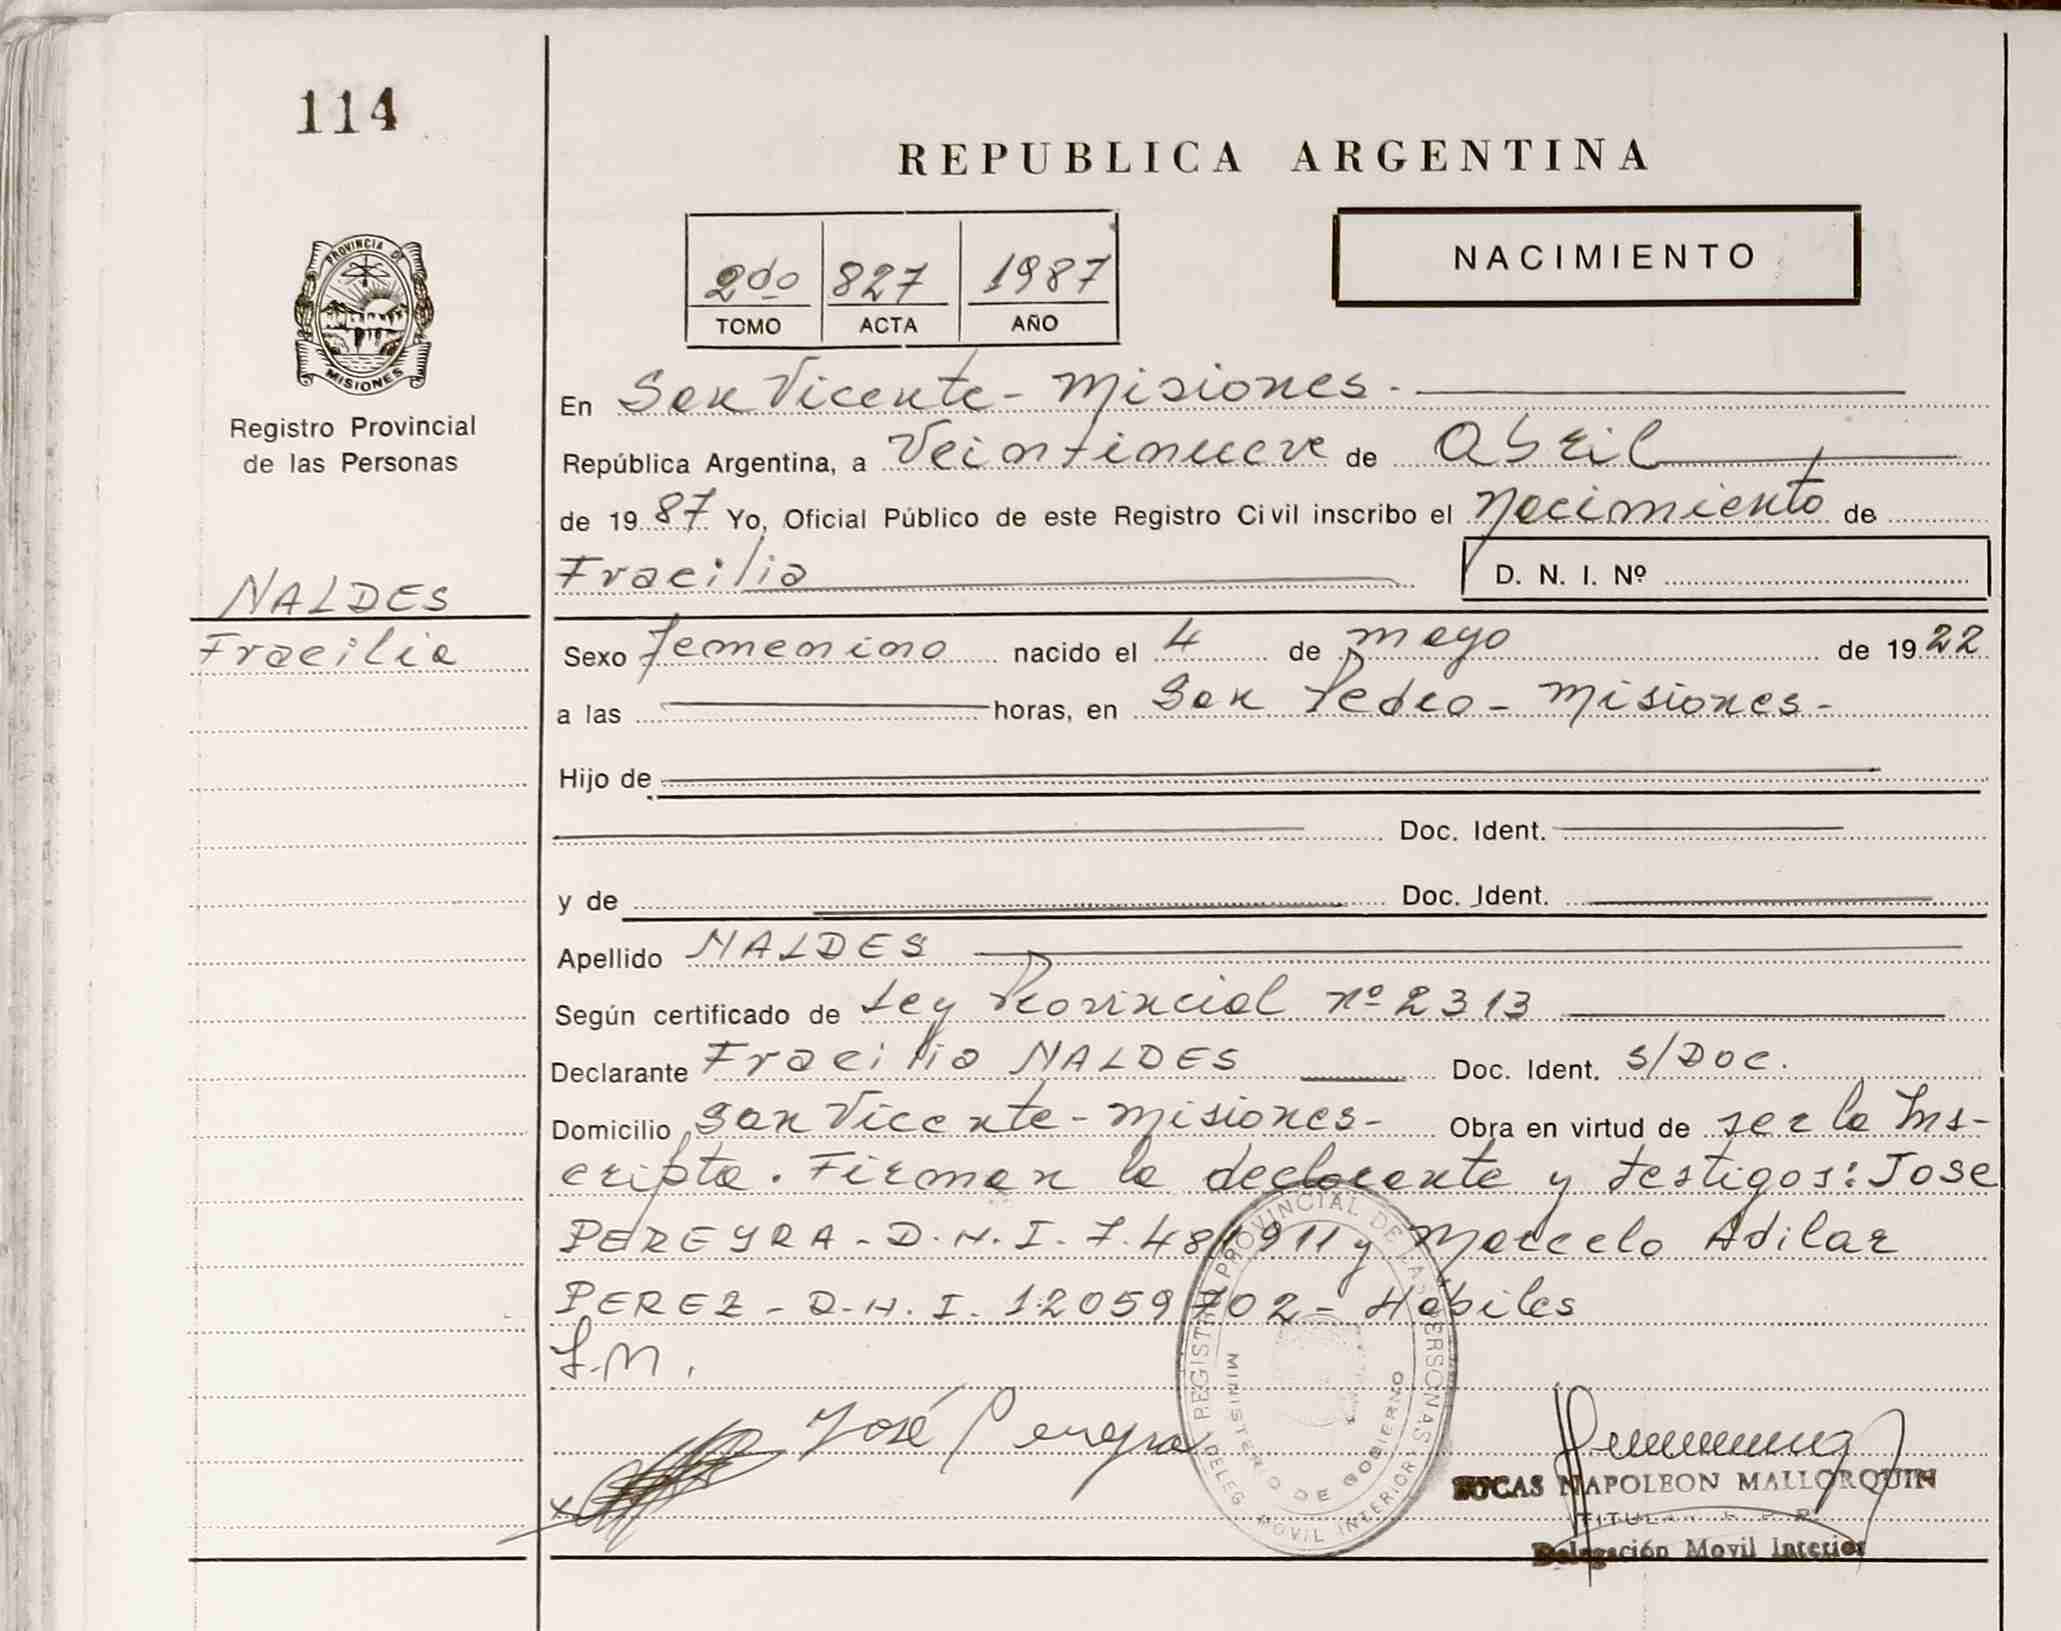 114
REPUBLICA ARGENTINA
2do 827 1987
TOMO ACTA AÑO
NACIMIENTO
PROVINCIA DE
MISIONES
Registro Provincial
de las Personas
En San Vicente - Misiones.
República Argentina, a Veintinueve de Abril
de 1987 Yo, Oficial Público de este Registro Civil inscribo el Nacimiento de
Fracilia D. N. I. Nº
NALDES
Fracilia
Sexo femenino nacido el 4 de mayo de 1922
a las horas, en San Pedro - Misiones -
Hijo de
Doc. Ident.
y de Doc. Ident.
Apellido NALDES
Según certificado de Ley Provincial nº 2313
Declarante Fracilia NALDES Doc. Ident. S/Doc.
Domicilio San Vicente - Misiones - Obra en virtud de ser la Ins-
cripta. Firman la declarante y testigos: Jose
PEREYRA - D.N.I. 7.481911 y Marcelo Adilar
PEREZ - D.N.I. 12059702 - Habiles
José Pereyra
REGISTRO PROVINCIAL DE LAS PERSONAS
MINISTERIO DE GOBIERNO
DELEG. MOVIL INTERIOR
NAPOLEON MALLORQUIN
TITULAR
Delegación Movil Interior